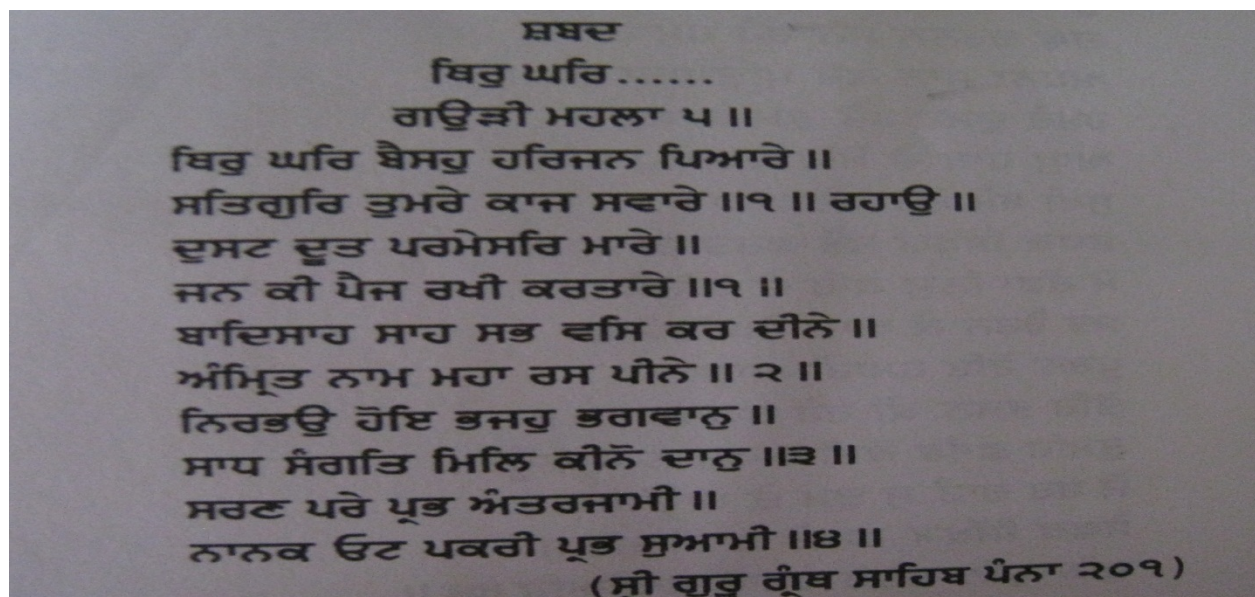 ਸ਼ਬਦ
ਥਿਰੁ ਘਰਿ......
ਗਉੜੀ ਮਹਲਾ ੫ ॥
ਥਿਰੁ ਘਰਿ ਬੈਸਹੁ ਹਰਿਜਨ ਪਿਆਰੇ ॥
ਸਤਿਗੁਰਿ ਤੁਮਰੇ ਕਾਜ ਸਵਾਰੇ ॥੧ ॥ ਰਹਾਉ ॥
ਦੁਸਟ ਦੂਤ ਪਰਮੇਸਰਿ ਮਾਰੇ ॥
ਜਨ ਕੀ ਪੈਜ ਰਖੀ ਕਰਤਾਰੇ ॥੧ ॥
ਬਾਦਿਸਾਹ ਸਾਹ ਸਭ ਵਸਿ ਕਰ ਦੀਨੇ ॥
ਅੰਮ੍ਰਿਤ ਨਾਮ ਮਹਾ ਰਸ ਪੀਨੇ ॥ ੨ ॥
ਨਿਰਭਉ ਹੋਇ ਭਜਹੁ ਭਗਵਾਨੁ ॥
ਸਾਧ ਸੰਗਤਿ ਮਿਲਿ ਕੀਨੋ ਦਾਨੁ ॥੩ ॥
ਸਰਣ ਪਰੇ ਪ੍ਰਭ ਅੰਤਰਜਾਮੀ ॥
ਨਾਨਕ ਓਟ ਪਕਰੀ ਪ੍ਰਭ ਸੁਆਮੀ ॥੪ ॥
(ਸ੍ਰੀ ਗੁਰੂ ਗ੍ਰੰਥ ਸਾਹਿਬ ਪੰਨਾ ੨੦੧)